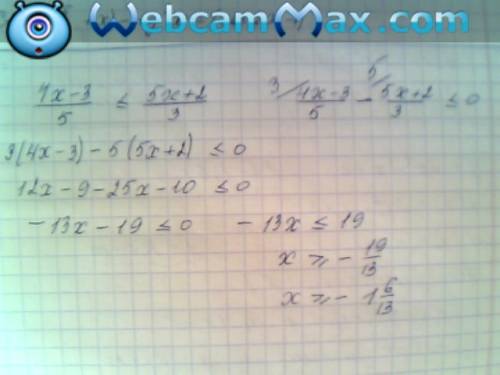 WebcamMax.com
(4x-3)/5 ≤ (5x+2)/3
3/ (4x-3)/5 - 5/ (5x+2)/3 ≤ 0
3(4x-3)-5(5x+2) ≤ 0
12x-9-25x-10 ≤ 0
-13x-19 ≤ 0
-13x ≤ 19
x ⩾ - 19/13
x ⩾ - 1 6/13